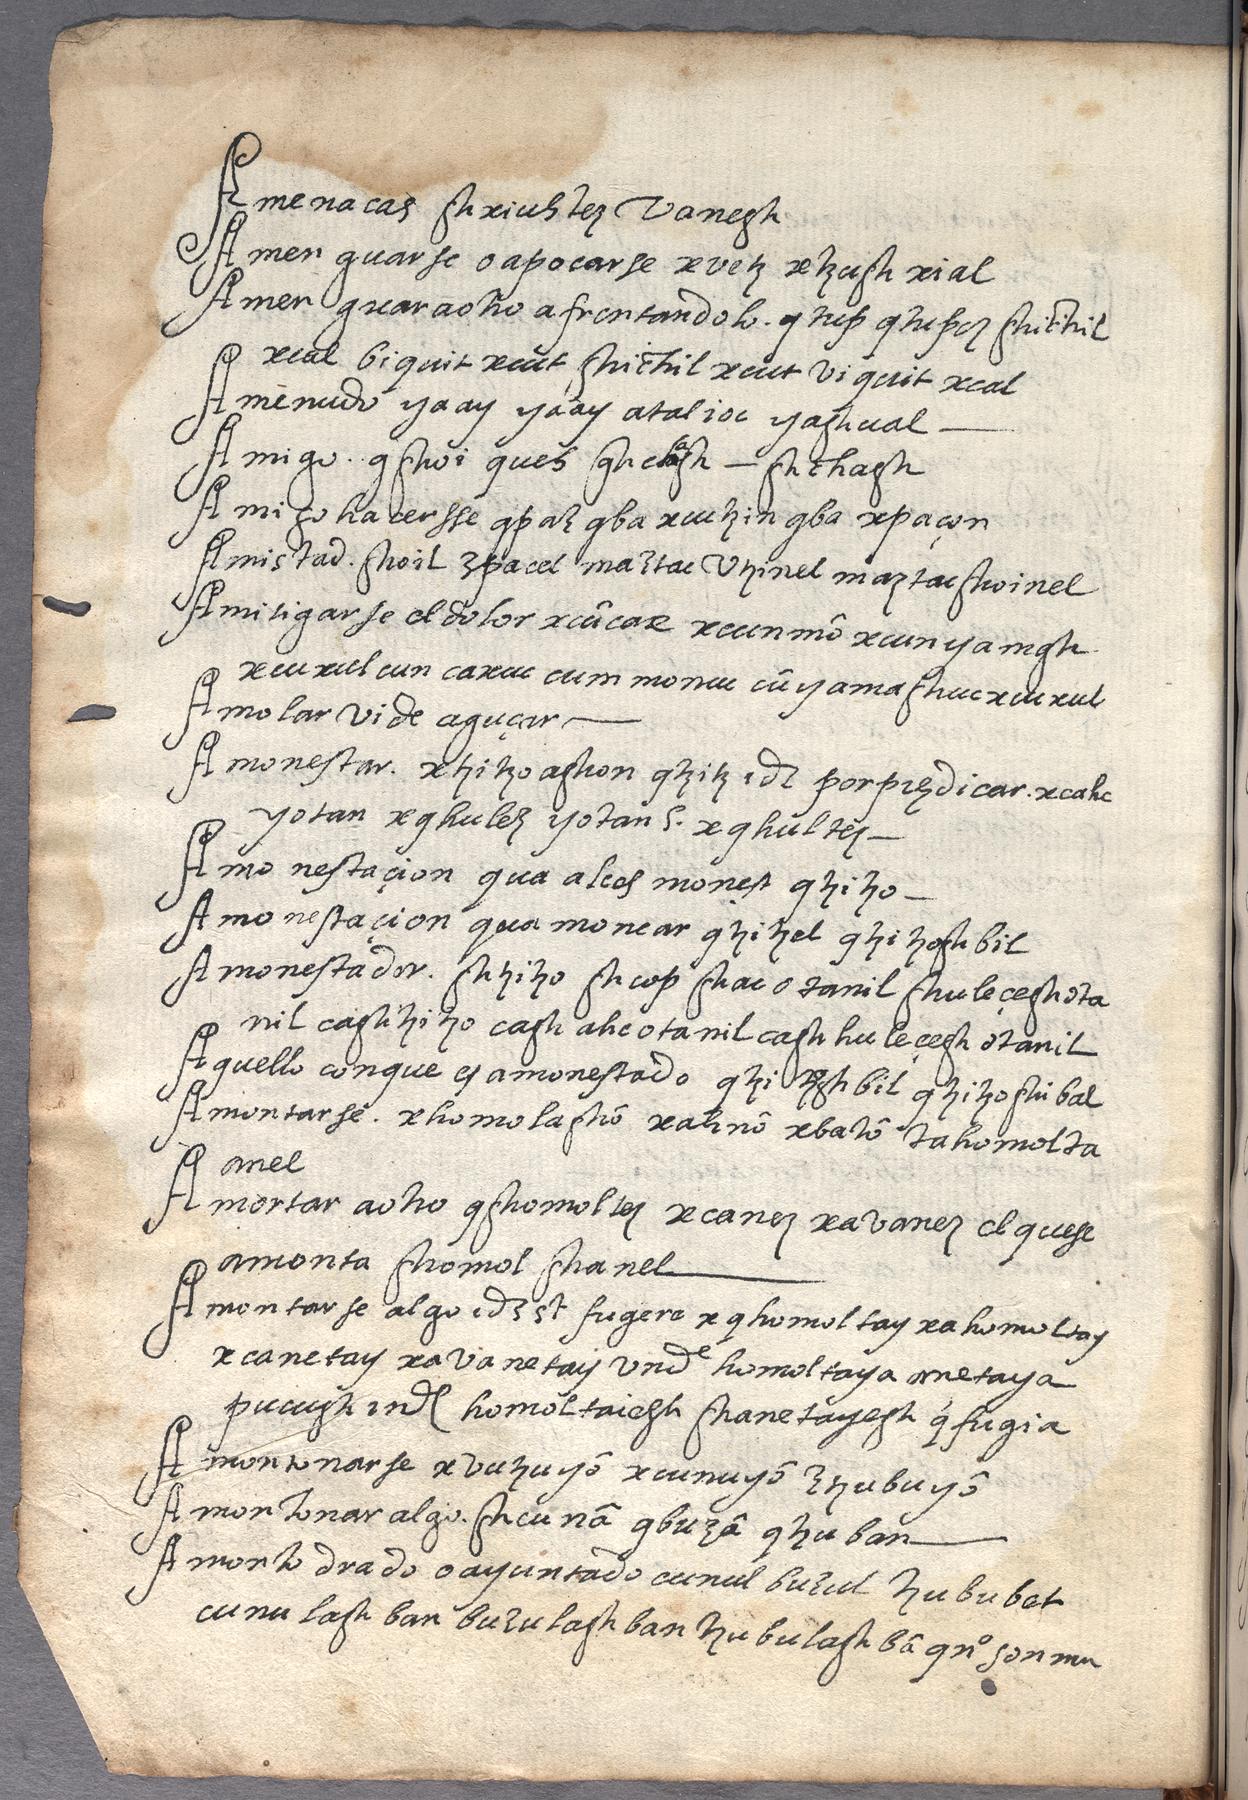 Amenacas ghxiuhtez vanegh
Amen guarse o apocarse xvetz xtzugh xial
Amen guar aotro afrentandolo. qtup qtupez ghichil
xcal biquit xcut ghichil xcut viquit xcal
Amenudo yaay yaay atalioc yaghual
Amigo. qghoi ques ghchagh
Amigo hacersse qpatz qba xcutzin qba xpaçon
Amistad. ghoil zpacel maztac vtzinel maztac ghoinel
Amitigarse el dolor xcûcax xcunmô xcunyamgh
xcuxul cun caxuc cummonuc cûyamaghuc xcuxul
Amolar vide aguçar
Amonestar. xtzitzoaghon qtzitz idz por przdicar. xcahc
yotan xqhulez yotan s. xqhultez
Amonestaçion qua alcos monest qtzitzo
Amonestaçion qua monear qtzitzel qtzitzoghbil
Amonestador. ghtzitzo ghcop ghac otanil ghuleçegh ota
nil caghtzitzo cagh ahcotanil cagh huleçegh otanil
Aquello conque es amonestado qtzitzghbil qtzitzoghibal
Amontarse. xhomolaghô xahnô xbatô tahomolta
anel
Amontar aotro qghomoltez xcanez xavanez el quese
amonta ghomol ghanel
Amontarse algo idz st fugere xqhomoltay xahomoltay
xcanetay xavanetay vnde homoltaya anetaya
pucugh indz homoltaiegh ghanetayegh q fugia
Amontonarse xvutzuyô xcunuyô ztzubuyô
Amontonar algo. ghcunâ qbuzâ qtzuban
Amontodrado o ayuntado cunul buzul tzububet
cunulagh ban buzulagh ban tzubulagh bâ qno son mu